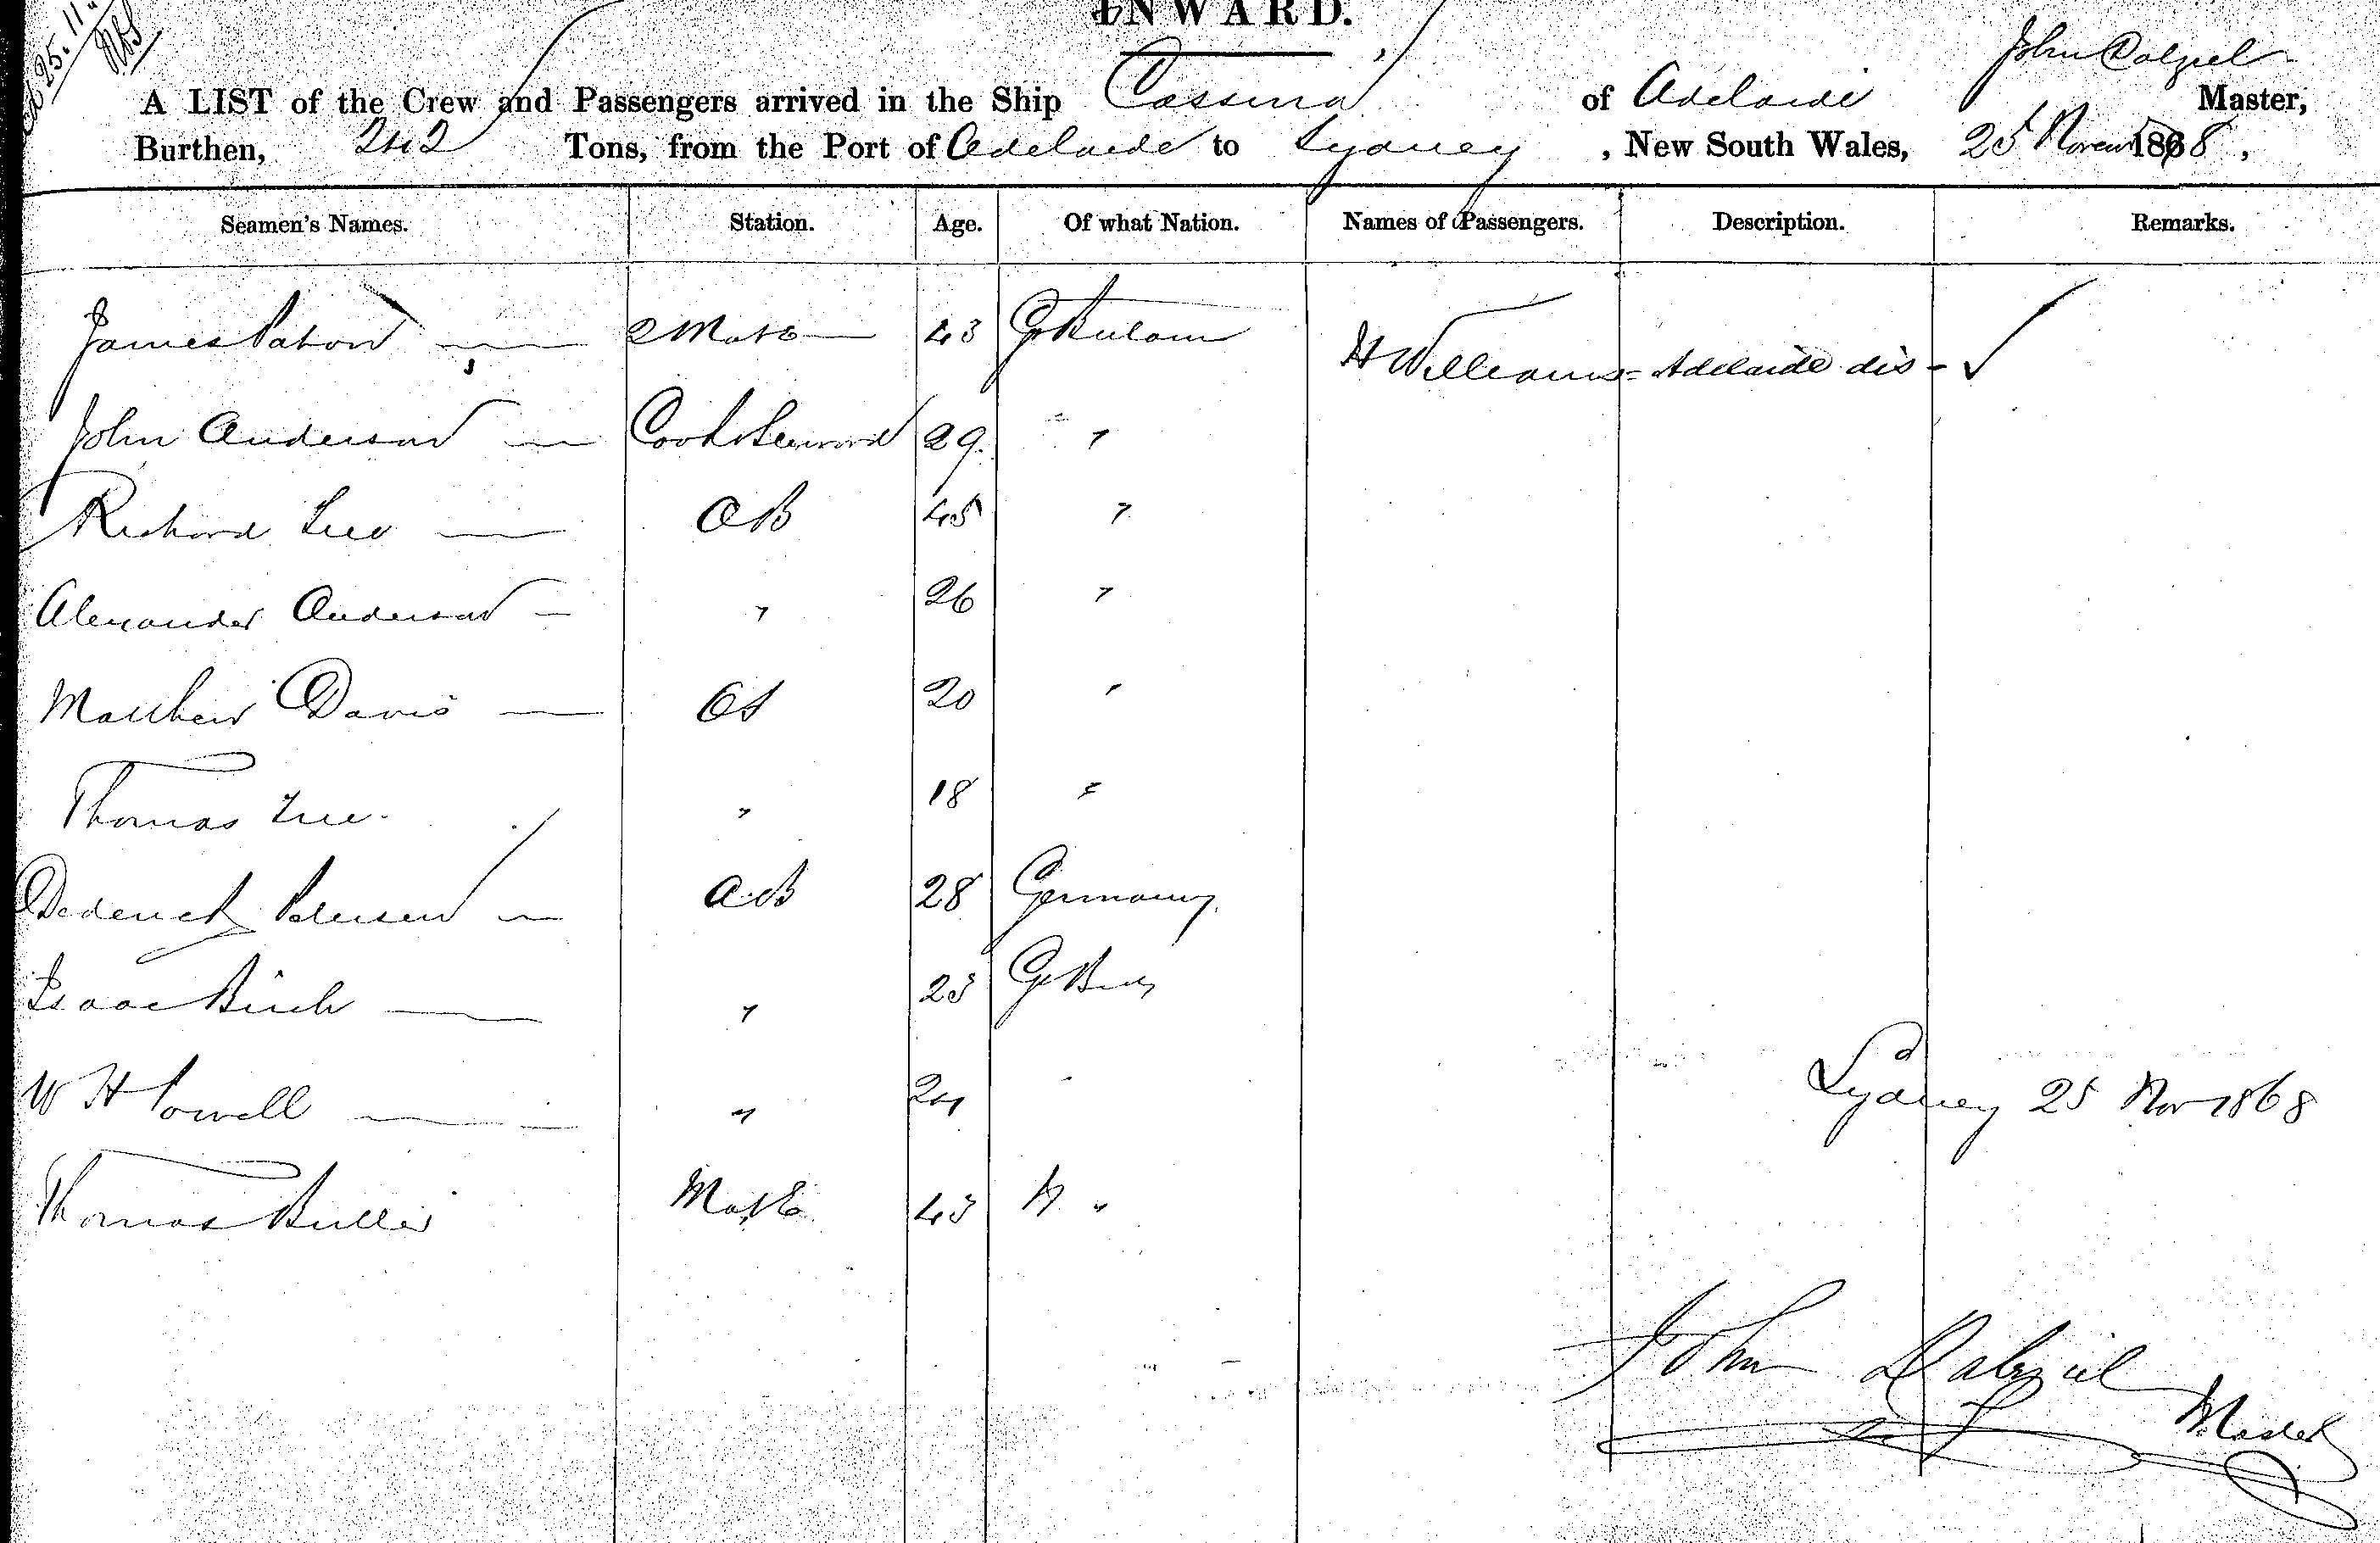 25.11.
INWARD.
A LIST of the Crew and Passengers arrived in the Ship Cassina of Adelaide John Dalziel Master,
Burthen, 242 Tons, from the Port of Adelaide to Sydney, New South Wales, 25 Novem 1868,
Seamen's Names. Station. Age. Of what Nation. Names of Passengers. Description. Remarks.
James Paton 2 Mate 43 Gt Britain H Williams = Adelaide dis - ✓
John Anderson Cook & Steward 29. "
Richard Lee AB 45 "
Alexander Anderson " 26 "
Matthew Davis OS 20 "
Thomas Lee. " 18 "
Dederick Petersen AB 28 Germany.
Isaac Birch " 23 Gt Brit
W H Powell " 24 "
Sydney 25 Nov 1868
Thomas Buller Mate 43 "
John Dalziel
Master